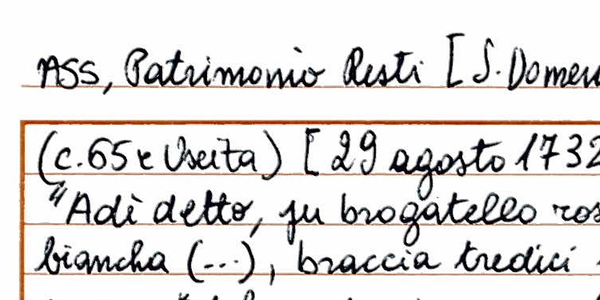 ASS, Patrimonio Resti [S. Domen
(c. 65 e Uscita) [29 agosto 1732
"Adì detto, fu brogatello ros
biancha (...), braccia tredici